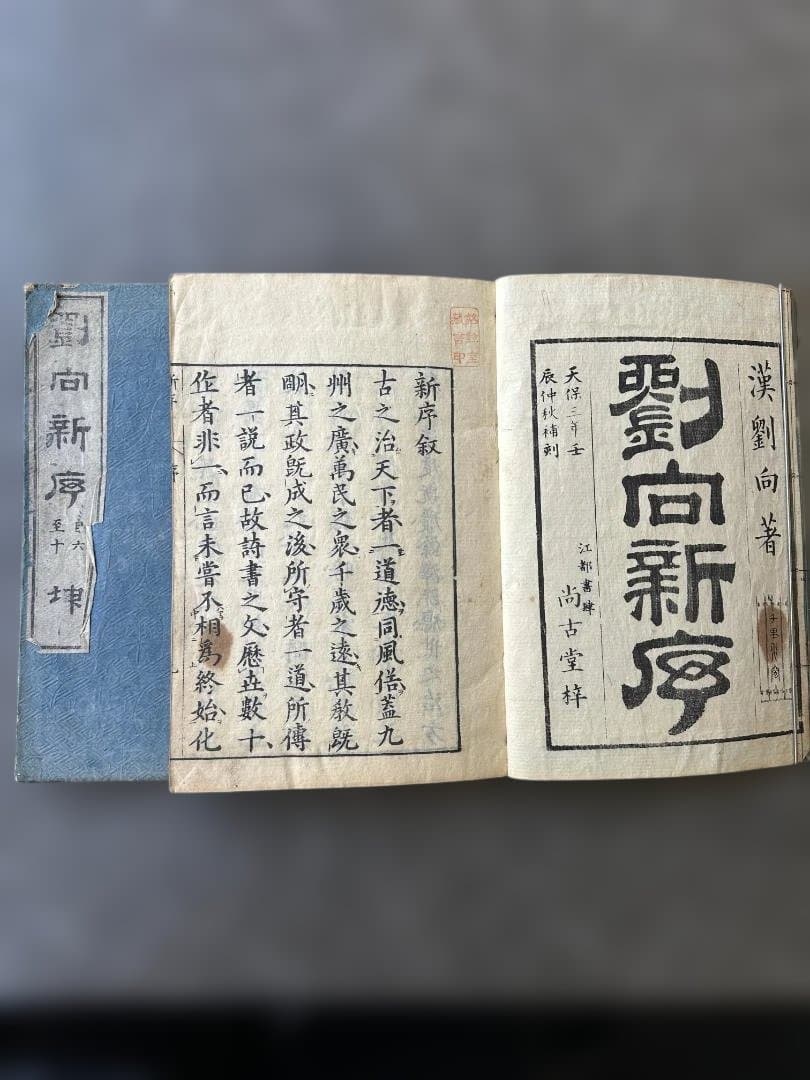 漢劉向著
劉向新序
天保三年壬
辰仲秋補刻
江都書肆
尚古堂梓
新序叙
古之治天下者一道德同風俗蓋九
州之廣萬民之衆千歲之遠其敎既
明其政既成之後所守者一道所傳
者一說而已故詩書之文歷世數十
作者非一而言未嘗不相爲終始化
劉向新序
六
至十
坤